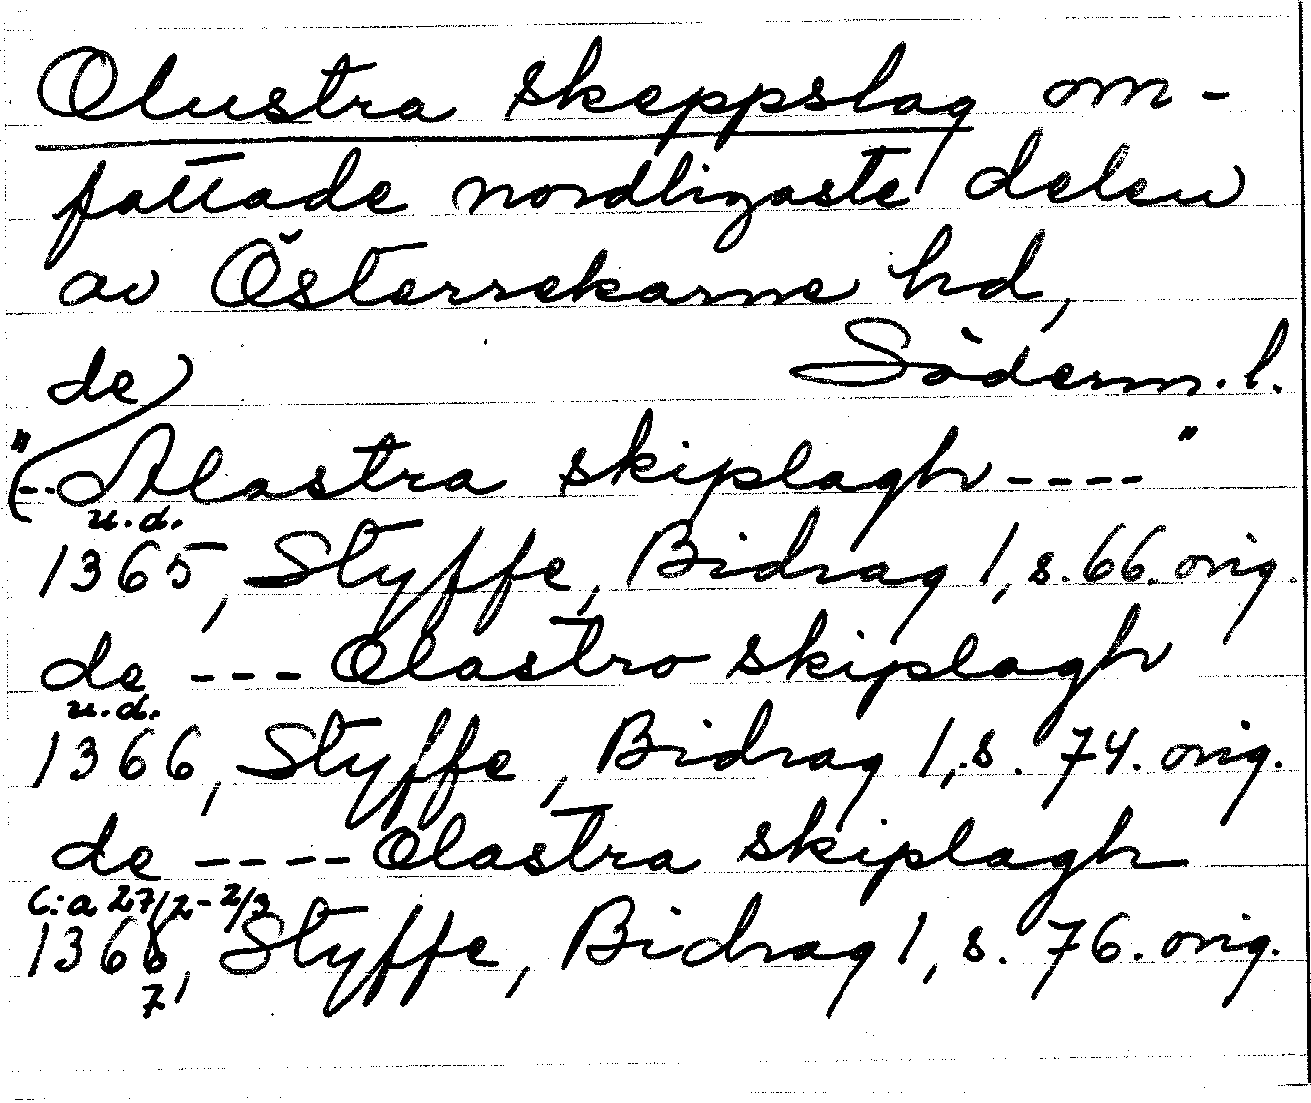 Olustra skeppslag om-
fattade nordligaste delen
av Österrekarne hd,
Söderm. l.
de
"(--- Alastra skiplagh ----"
u.d.
1365, Styffe, Bidrag 1, s. 66. orig.
de --- Olastro skiplagh
u.d.
1366, Styffe, Bidrag 1, s. 74. orig.
de ---- Olastra skiplagh
c:a 27/2-2/3
1368, Styffe, Bidrag 1, s. 76. orig.
7